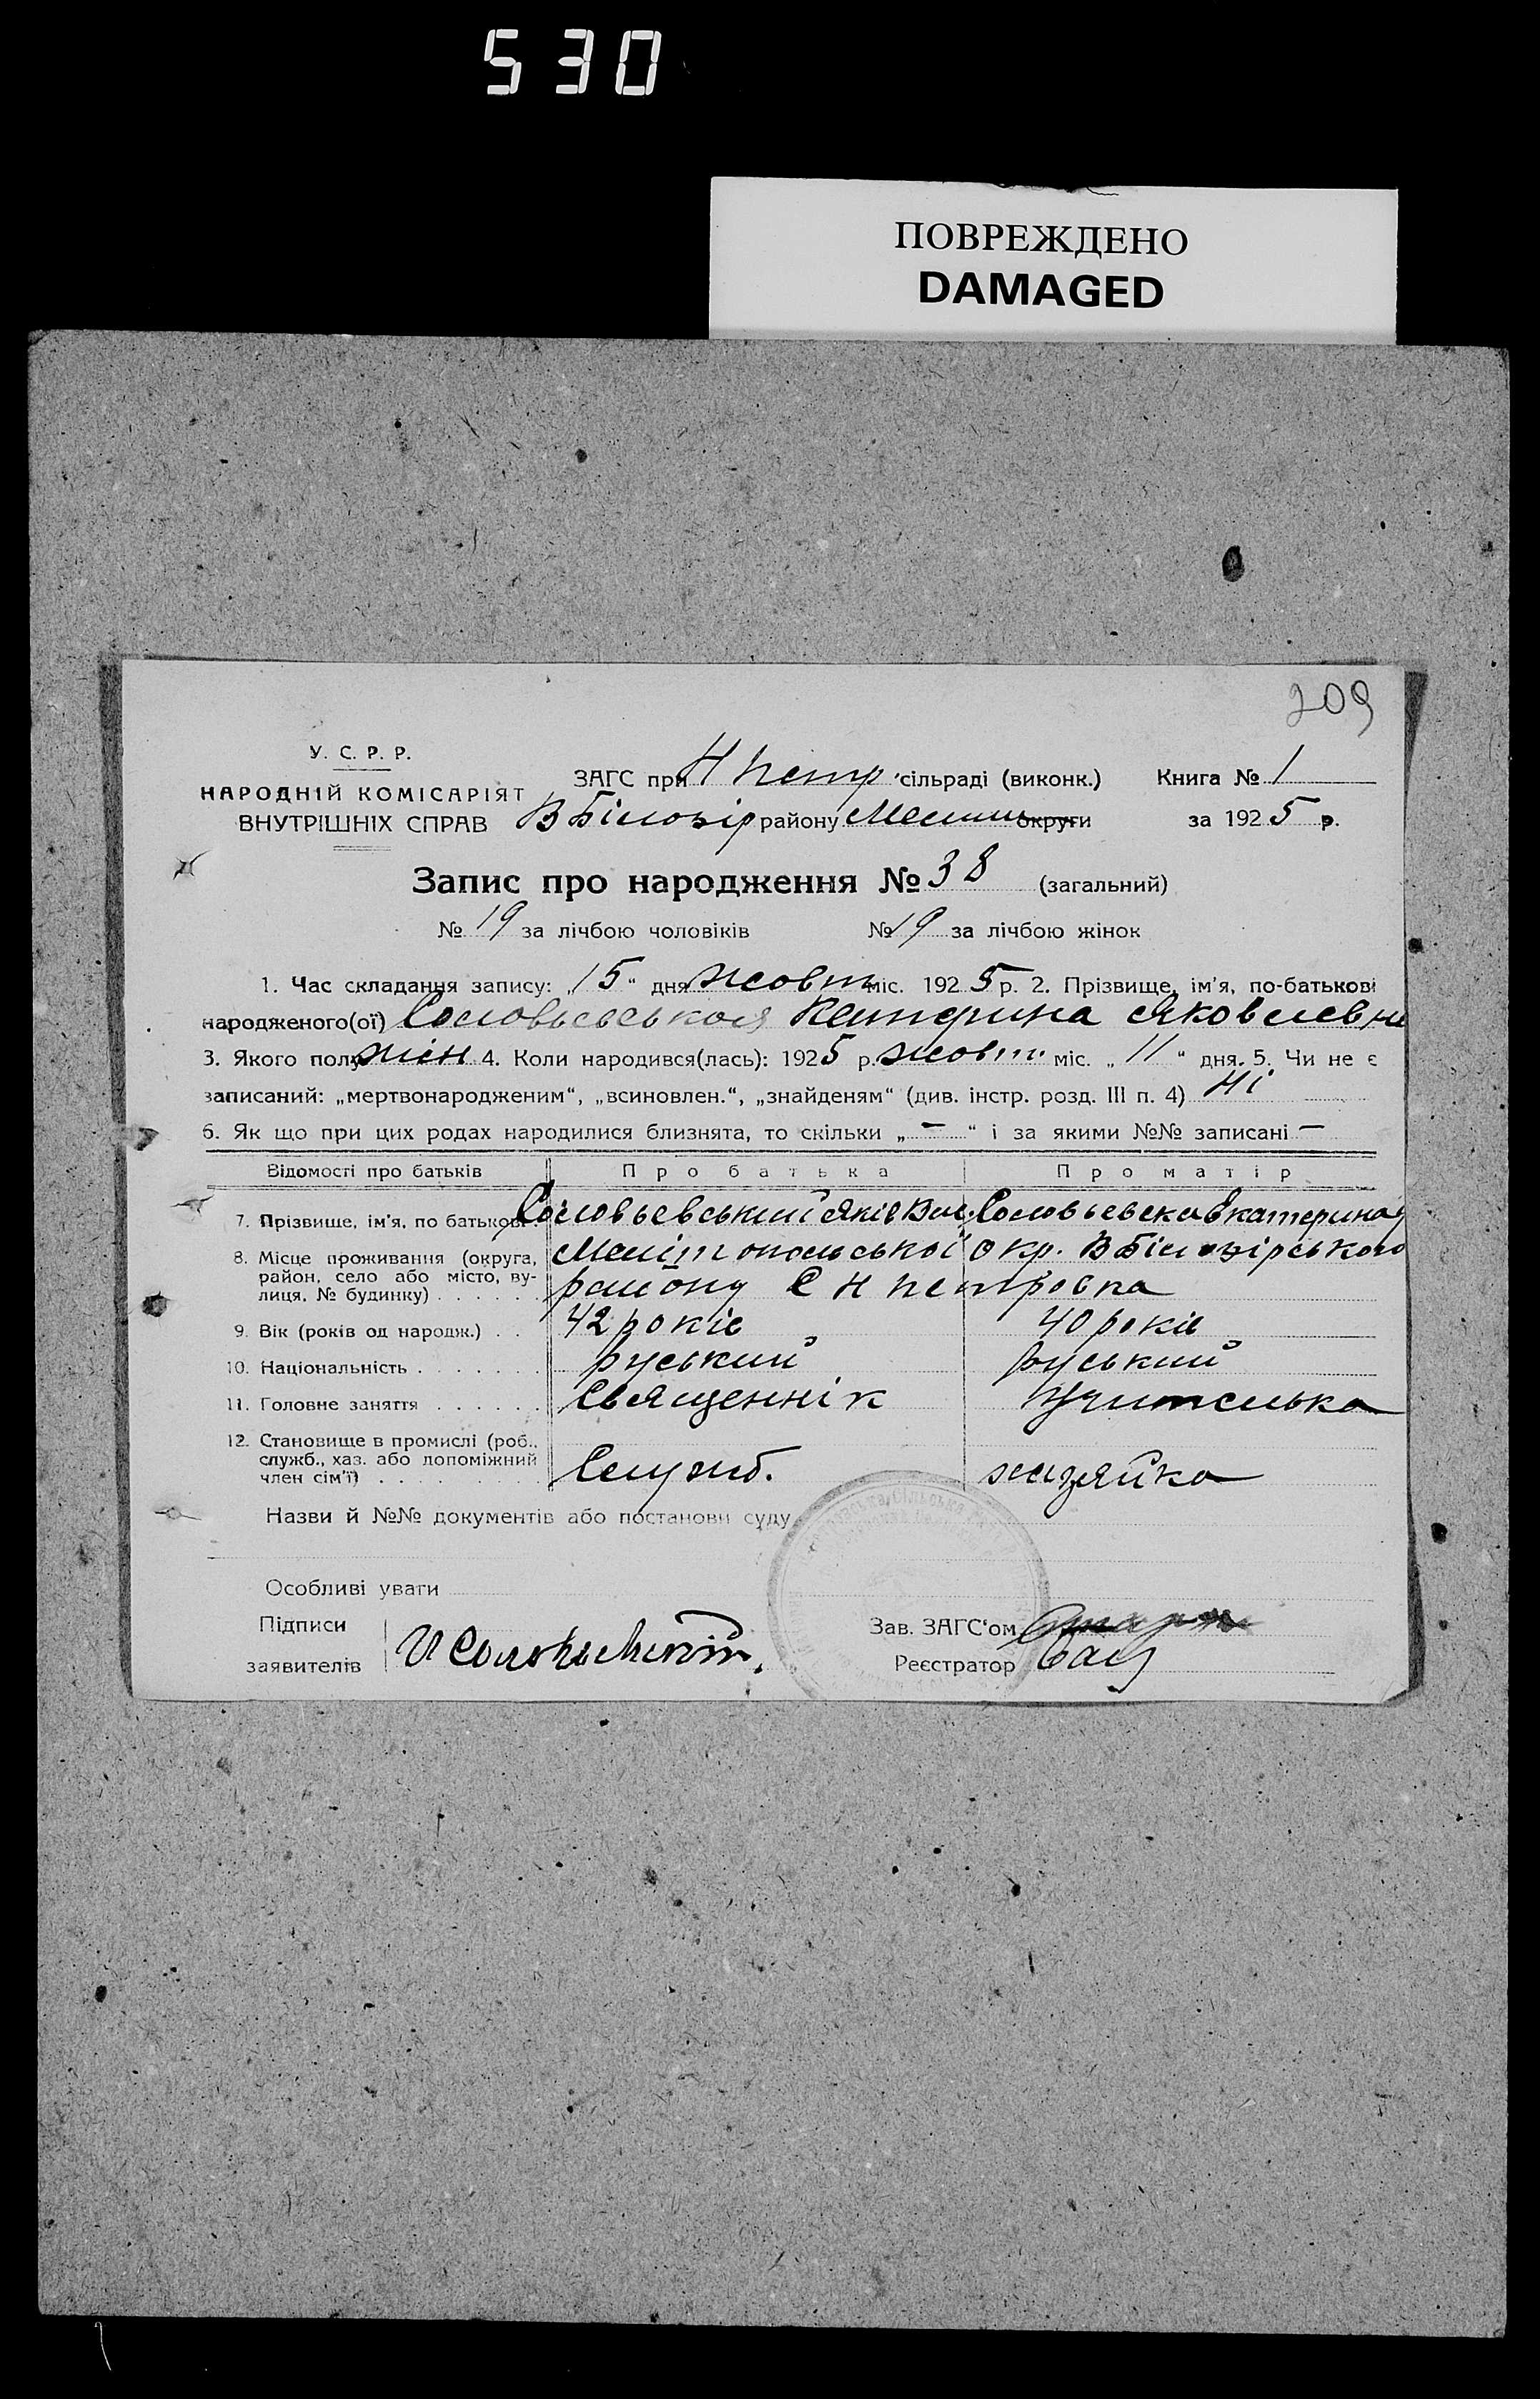 530
ПОВРЕЖДЕНО
DAMAGED
209
У. С. Р. Р.
НАРОДНІЙ КОМІСАРІЯТ
ВНУТРІШНІХ СПРАВ
ЗАГС при Н петр сільраді (виконк.) Книга № 1
В Білозір району Мелит округи за 1925 р.
Запис про народження № 38 (загальний)
№ 19 за лічбою чоловіків № 19 за лічбою жінок
1. Час складання запису: „15“ дня жовт міс. 1925 р. 2. Прізвище, ім'я, по-батькові
народженого(ої) Соловьевськоя Катерина Яковлевни
3. Якого полу жін 4. Коли народився(лась): 1925 р. жовт. міс. „11“ дня. 5. Чи не є
записаний: „мертвонародженим“, „всиновлен.“, „знайденям“ (див. інстр. розд. III п. 4) Ні
6. Як що при цих родах народилися близнята, то скільки „–“ і за якими №№ записані –
Відомості про батьків Про батька Про матір
7. Прізвище, ім'я, по батькові Соловьевський Яків Соловьевска Екатерина
8. Місце проживання (округа, Мелітопольської Окр. В Білозірського
район, село або місто, ву- району С Н петровка
лиця, № будинку) . . . . .
9. Вік (років од народж.) . . 42 років 40 років
10. Національність . . . . . . руський руський
11. Головне заняття . . . . . . Священнік Учителька
12. Становище в промислі (роб.,
служб., хаз. або допоміжний
член сім'ї) . . . . . . . Служб. хазяйка
Назви й №№ документів або постанови суду
Особливі уваги
Підписи
Зав. ЗАГС'ом
заявителів
Реєстратор